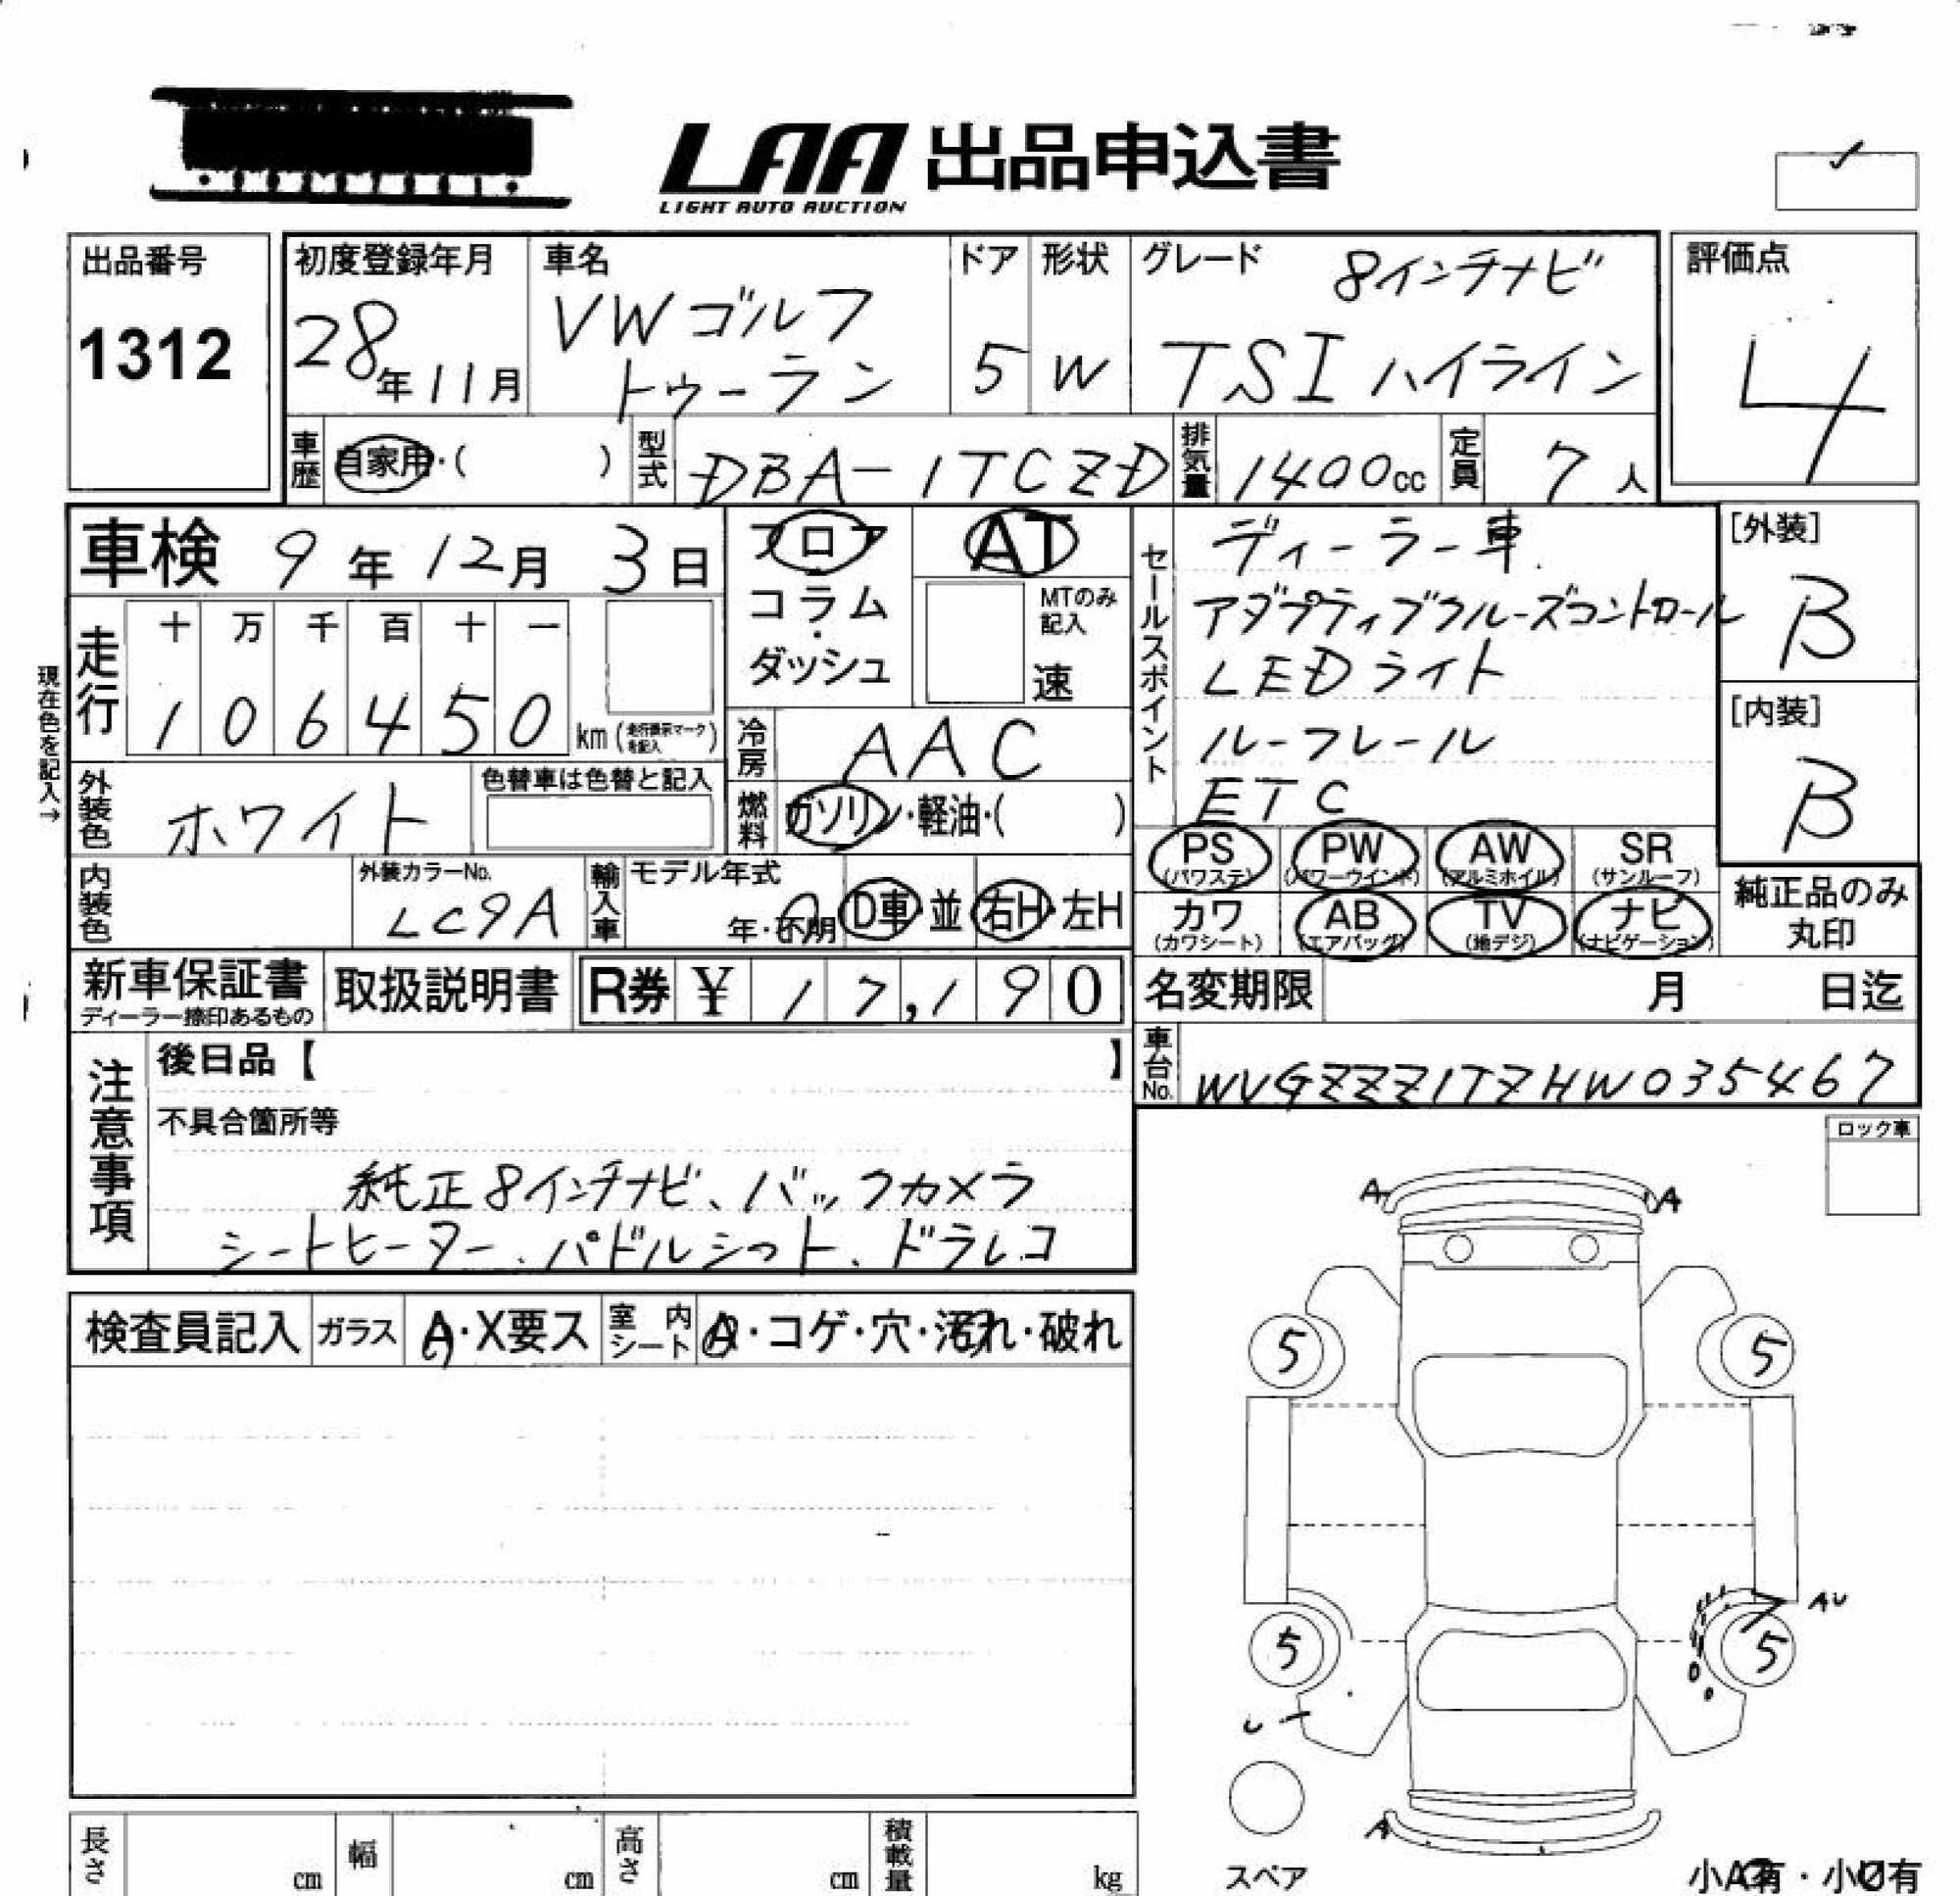 LAA 出品申込書
LIGHT AUTO AUCTION
出品番号
1312
初度登録年月
28年11月
車名
VWゴルフ
トゥーラン
ドア
5
形状
W
グレード
8インチナビ
TSIハイライン
評価点
4
車歴
自家用・( )
型式
DBA-1TCZD
排気量
1400cc
定員
7人
車検 9年12月3日
フロア
コラム
・
ダッシュ
AT
MTのみ
記入
速
セールスポイント
ディーラー車
アダプティブクルーズコントロール
LEDライト
ルーフレール
ETC
[外装]
B
[内装]
B
現在色を記入→
走行
十 万 千 百 十 一
1 0 6 4 5 0 km (走行表示マークを記入)
冷房
AAC
燃料
ガソリン・軽油・( )
外装色
ホワイト
色替車は色替と記入
内装色
外装カラーNo.
LC9A
輸入車
モデル年式
年・不明
D車・並
右H・左H
PS
(パワステ)
PW
(パワーウインド)
AW
(アルミホイル)
SR
(サンルーフ)
カワ
(カワシート)
AB
(エアバッグ)
TV
(地デジ)
ナビ
(ナビゲーション)
純正品のみ
丸印
新車保証書
ディーラー捺印あるもの
取扱説明書
R券 ¥ 17,190
名変期限 月 日迄
車台No.
WVGZZZ1TZHW035467
注意事項
後日品【 】
不具合箇所等
純正8インチナビ、バックカメラ
シートヒーター、パドルシフト、ドラレコ
ロック車
検査員記入
ガラス
A・X要ス
室内シート
A・コゲ・穴・汚れ・破れ
A
A
5
5
5
5
AU
A
スペア
長さ cm
幅 cm
高さ cm
積載量 kg
小A有・小U有